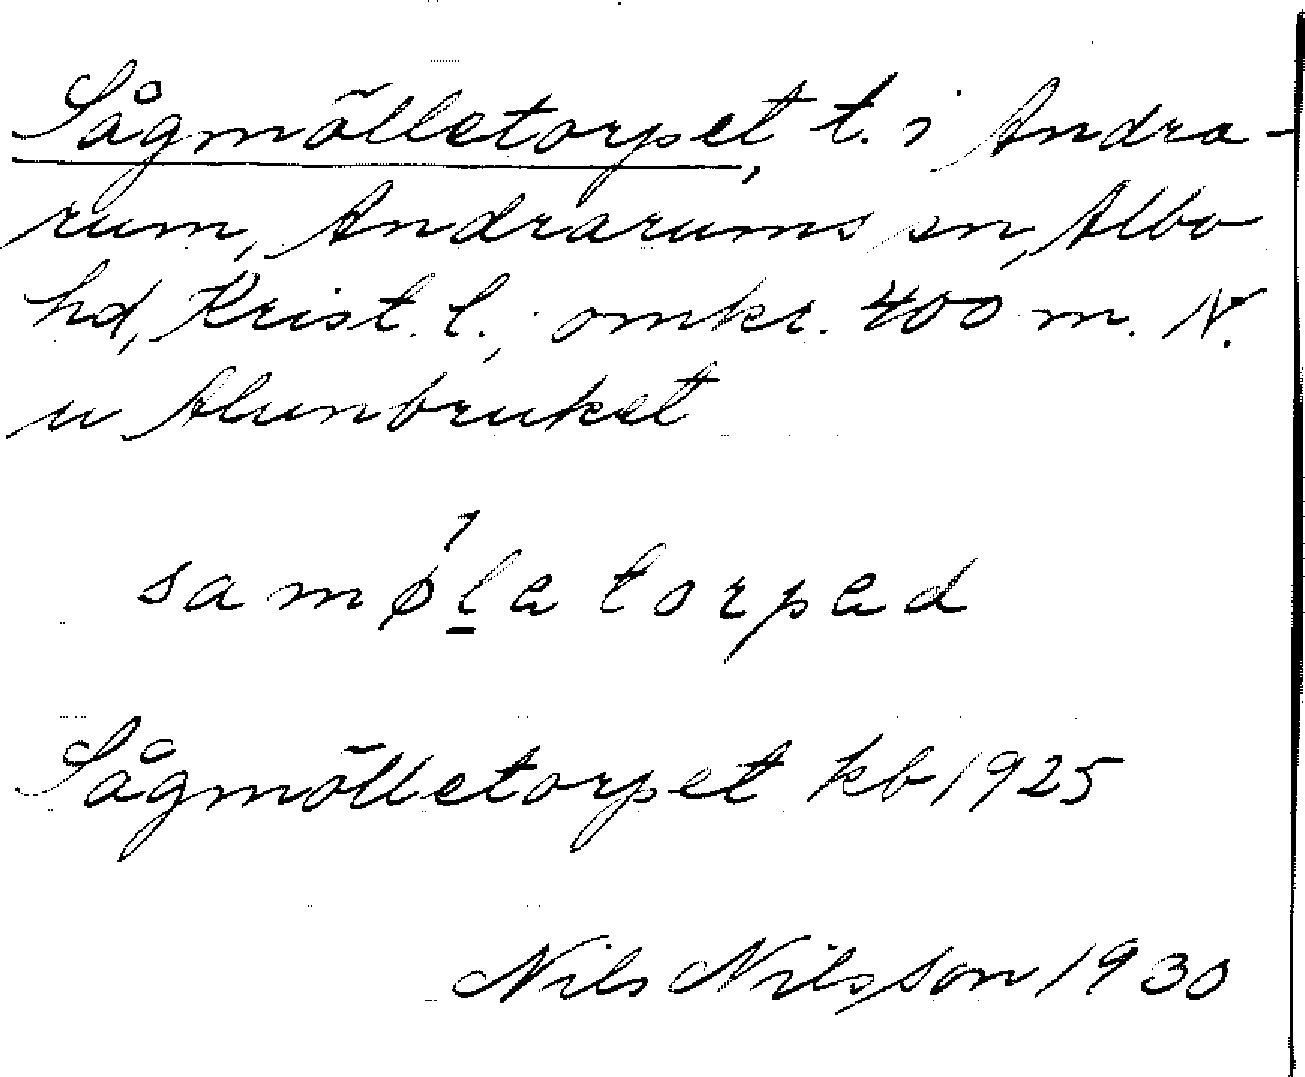 Sågmölletorpet, t. i Andra-
rum, Andrarums sn, Albo
hd, Krist. l., omkr. 400 m. N.
u Alunbruket
samø´l̲atorpad
Sågmölletorpet kb 1925
Nils Nilsson 1930